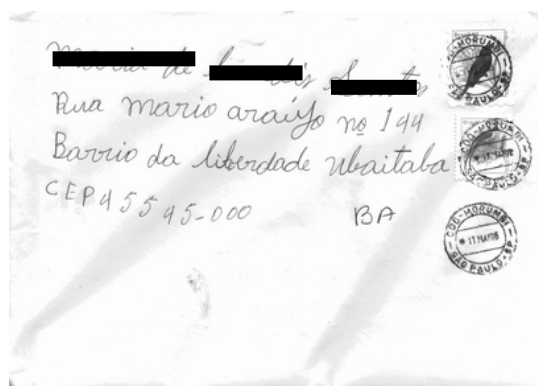 de
Rua mario araújo nº 144
Bairro da liberdade ubaitaba
CEP 45545-000 BA
CDD-MORUMBI
SÃO PAULO-SP
CDD-MORUMBI
SÃO PAULO-SP
CDD-MORUMBI
SÃO PAULO-SP